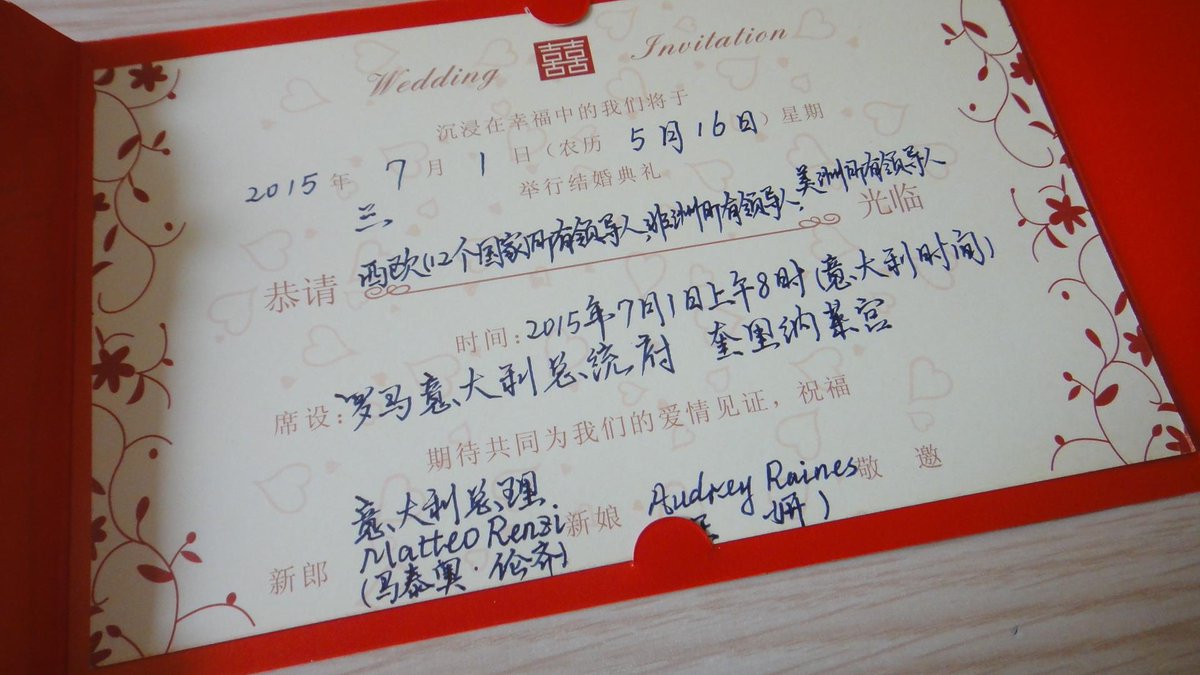 Wedding 囍 Invitation
沉浸在幸福中的我们将于
2015年 7月 1日（农历 5月16日）星期
三 举行结婚典礼
恭请 西欧(12个国家所有领导人,非洲所有领导人,美洲所有领导人 光临
时间:2015年7月1日上午8时(意大利时间)
席设:罗马意大利总统府 奎里纳莱宫
期待共同为我们的爱情见证，祝福
新郎 意大利总理 Matteo Renzi (马泰奥·伦齐) 新娘 Audrey Raines 妍) 敬邀